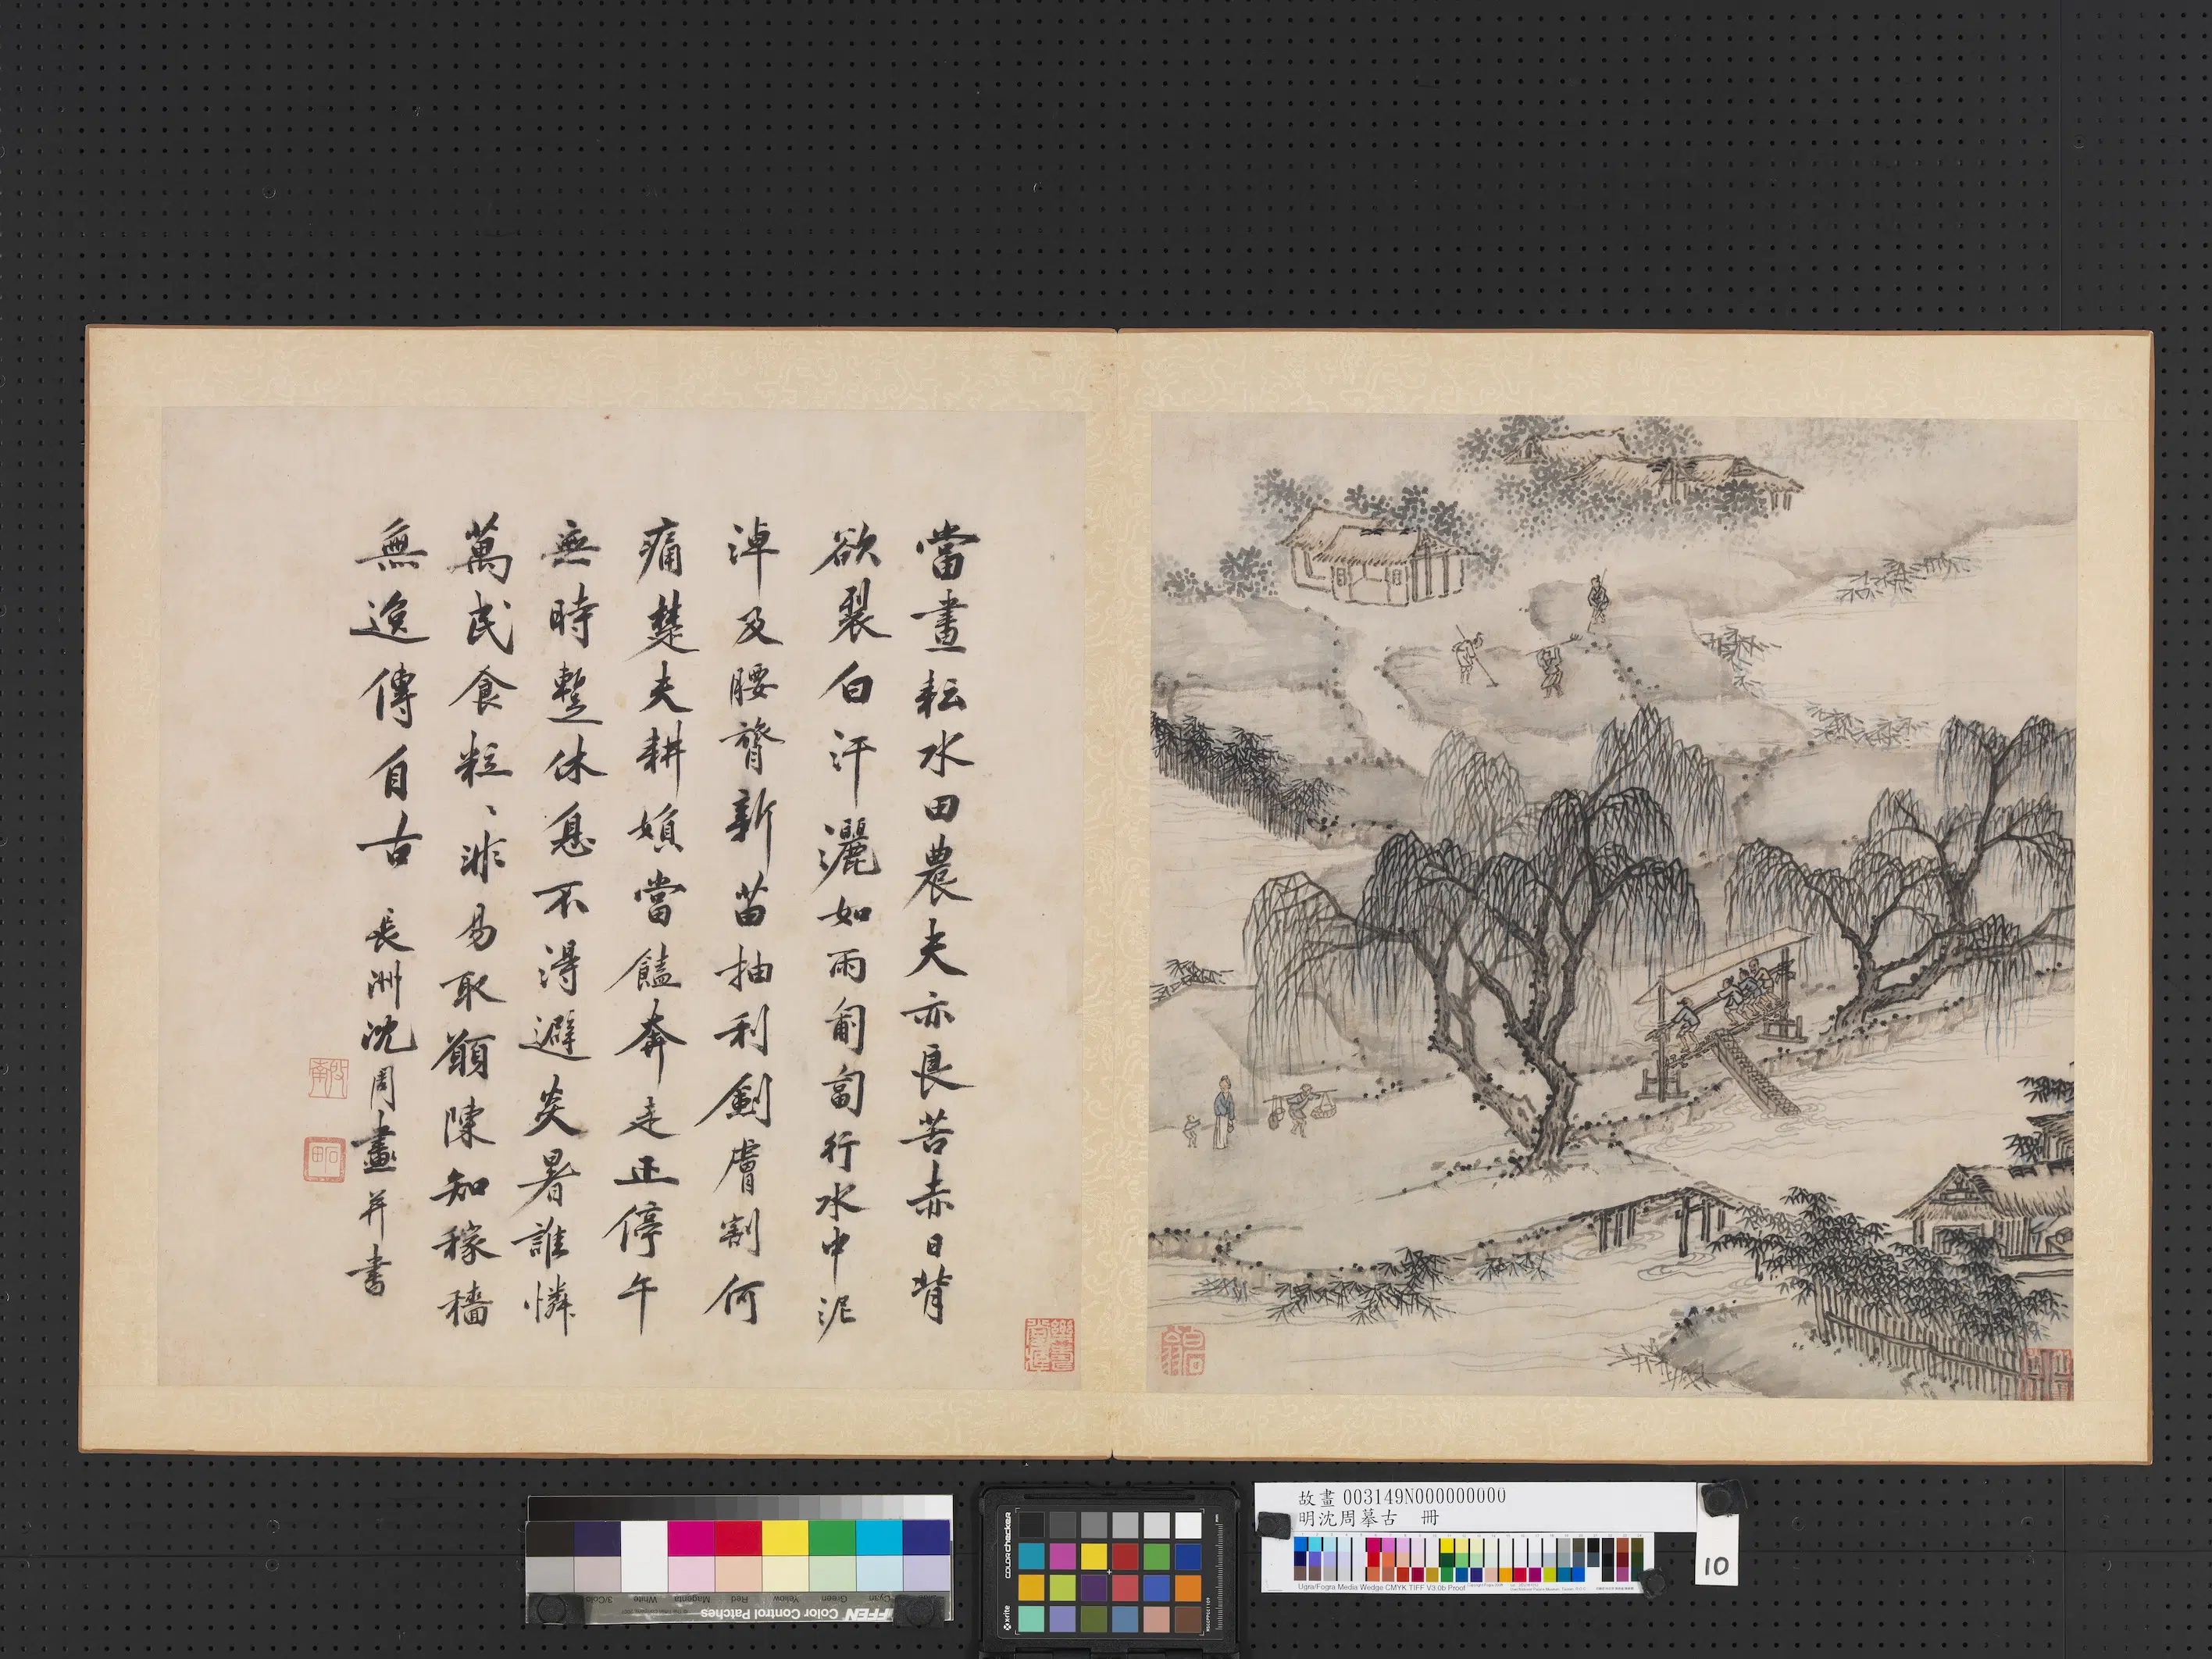 當晝耘水田農夫亦良苦赤日背
欲裂白汗灑如雨匍匐行水中泥
淖及腰膂新苗抽利劍膚割何
痛楚夫耕婦當饁奔走正停午
無時暫休息不得避炎暑誰憐
萬民食粒〻非易取願陳知稼穡
無逸傳自古 長洲沈周畫并書
啟南
石田
白石翁
故畫 003149N000000000
明沈周摹古 冊
10
Ugra/Fogra Media Wedge CMYK TIFF V3.0b Proof
colorchecker
x-rite
TIFFEN Color Control Patches
Cyan
Green
Yellow
Red
Magenta
White
3/Color